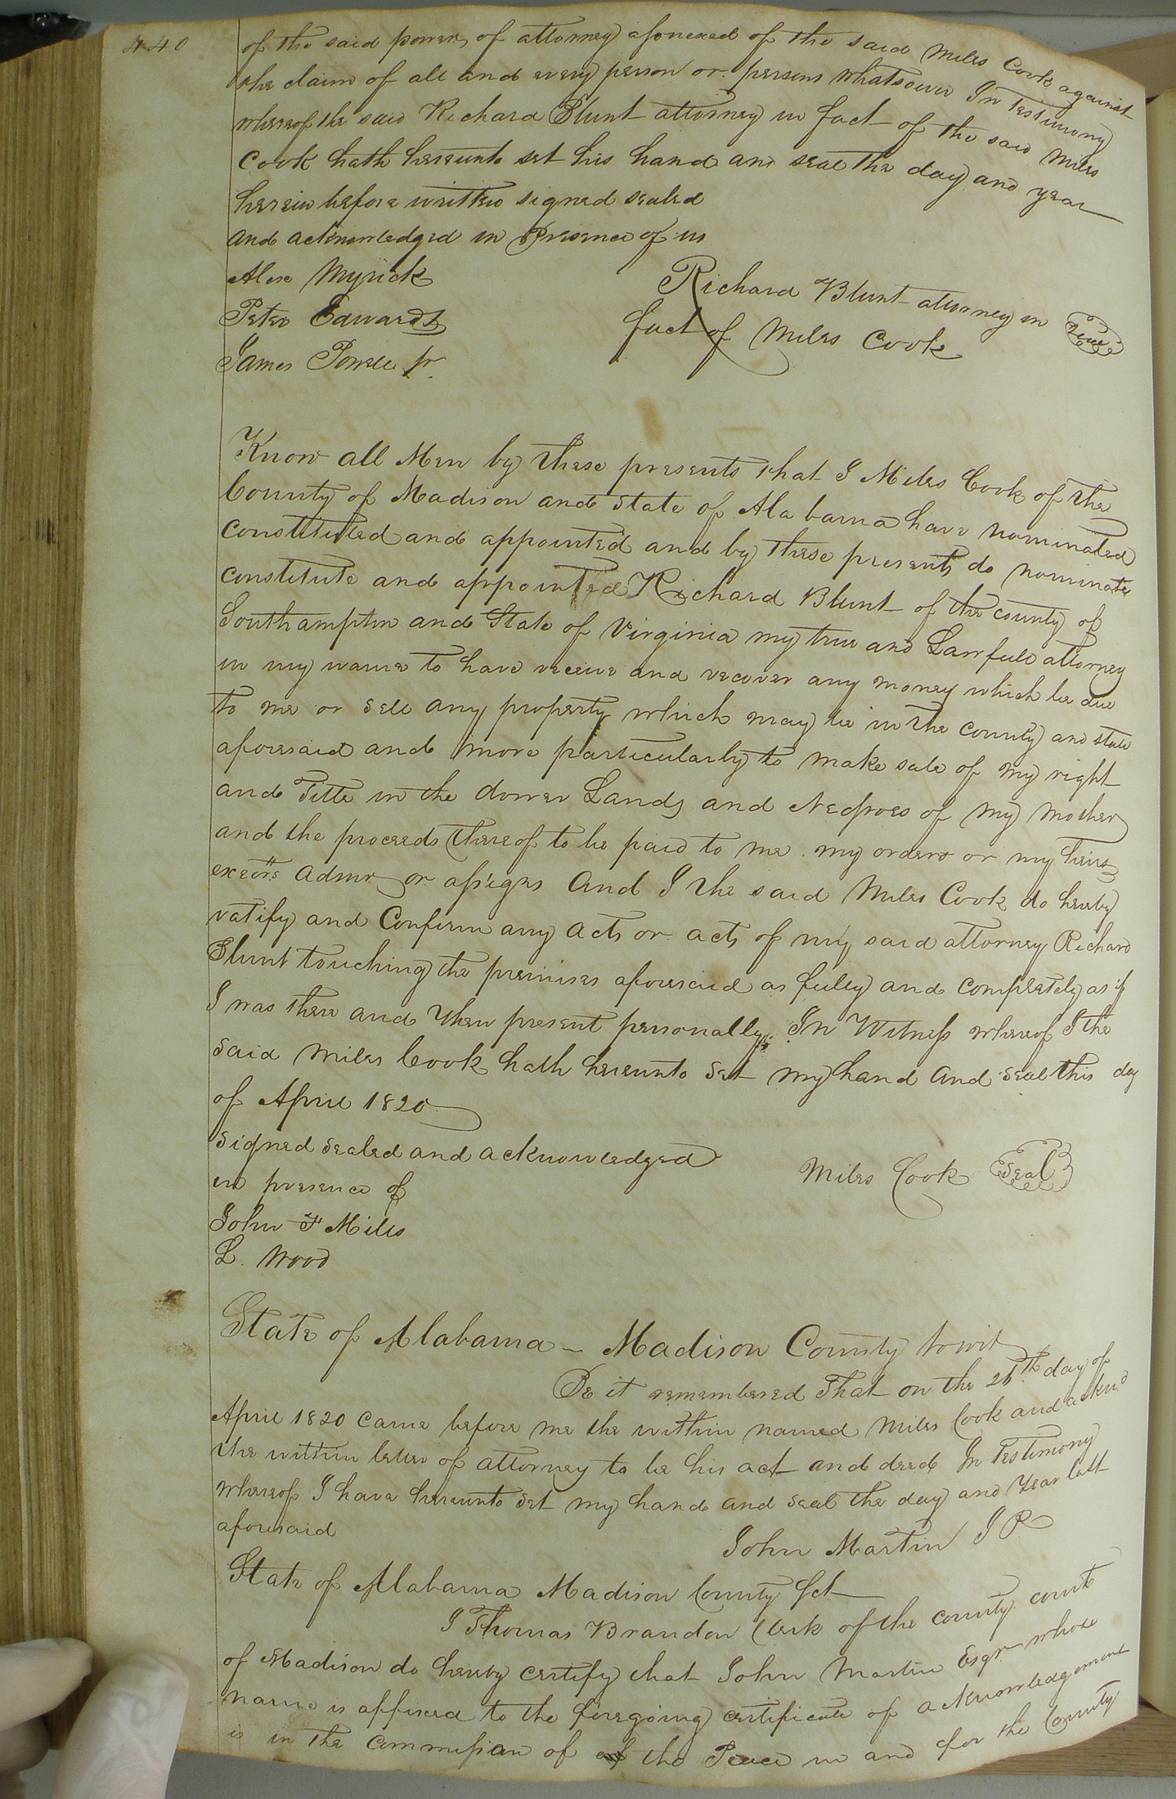 440
of the said power of attorney afonexed of the said Miles Cook against
the claim of all and every person or persons whatsoever In Testimony
whereof the said Richard Blunt attorney in fact of the said Miles
Cook hath hereunto set his hand and seal the day and year
herein before written signed sealed
and acknowledged in Presence of us
Alex Myrick
Richard Blunt attorney in Seal
Peter Edwards
fact of Miles Cook
James Powell jr.
Know all Men by these presents that I Miles Cook of the
County of Madison and State of Alabama have nominated
constituted and appointed and by these presents do nominate
constitute and appointed Richard Blunt of the county of
Southampton and State of Virginia my true and Lawfull attorney
in my name to have receive and recover any money which be due
to me or sell any property which may be in the county and state
aforesaid and more particularly to make sale of my right
and Title in the dower Lands and Negroes of my mother
and the proceeds thereof to be paid to me my orders or my heirs
exectrs admr or assigns And I the said Miles Cook do hereby
ratify and Confirm any acts or acts of my said attorney Richard
Blunt touching the premises aforesaid as fully and completely as if
I was there and then present personally. In Witness whereof I the
said Miles Cook hath hereunto set my hand and seal this day
of April 1820
signed sealed and acknowledged
in presence of
Miles Cook Seal
John F Mills
L. Wood
State of Alabama - Madison County towit
Be it remembered That on the 26th day of
April 1820 came before me the within named Miles Cook and acknd
the within letter of attorney to be his act and deed In Testimony
whereof I have hereunto set my hand and seal the day and year last
aforesaid
John Martin J P
State of Alabama Madison County Sct
I Thomas Brandon Clerk of the county court
of Madison do hereby certify that John Martin Esqr whose
name is affixed to the foregoing certificate of acknowledgement
is in the commission of of the Peace in and for the County